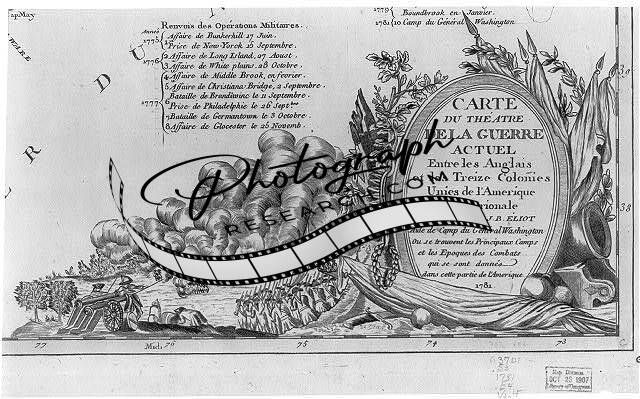 24 May
WARE
D
U
R
1779
Boundbrook en Janvier.
1781 10 Camp du Général Washington
Renvois des Opérations Militaires.
Années
1775 Affaire de Bunkerhill 17 Juin.
1 Prise de New-Yorck 15 Septembre.
1776 2 Affaire de Long Island, 27 Aoust.
3 Affaire de White plains, 28 Octobre.
4 Affaire de Middle Brook, en fevrier.
5 Affaire de Christiana Bridge, 2 Septembre.
Bataille de Brandiwinc le 11 Septembre.
1777 6 Prise de Philadelphie le 26 Septbre
7 Bataille de Germantown le 3 Octobre.
8 Affaire de Glocester le 25 Novemb.
CARTE
DU THEATRE
DE LA GUERRE
ACTUEL
Entre les Anglais
et les Treize Colonies
Unies de l'Amerique
J.B. ELIOT
de Camp du Général Washington
Ou se trouvent les Principaux Camps
et les Epoques des Combats
qui se sont donnés
dans cette partie de l'Amerique
1781
Photograph
RESEARCH.COM
39
38
77
Mid.
76
75
74
73
C
Map Division
OCT 23 1907
Library of Congress